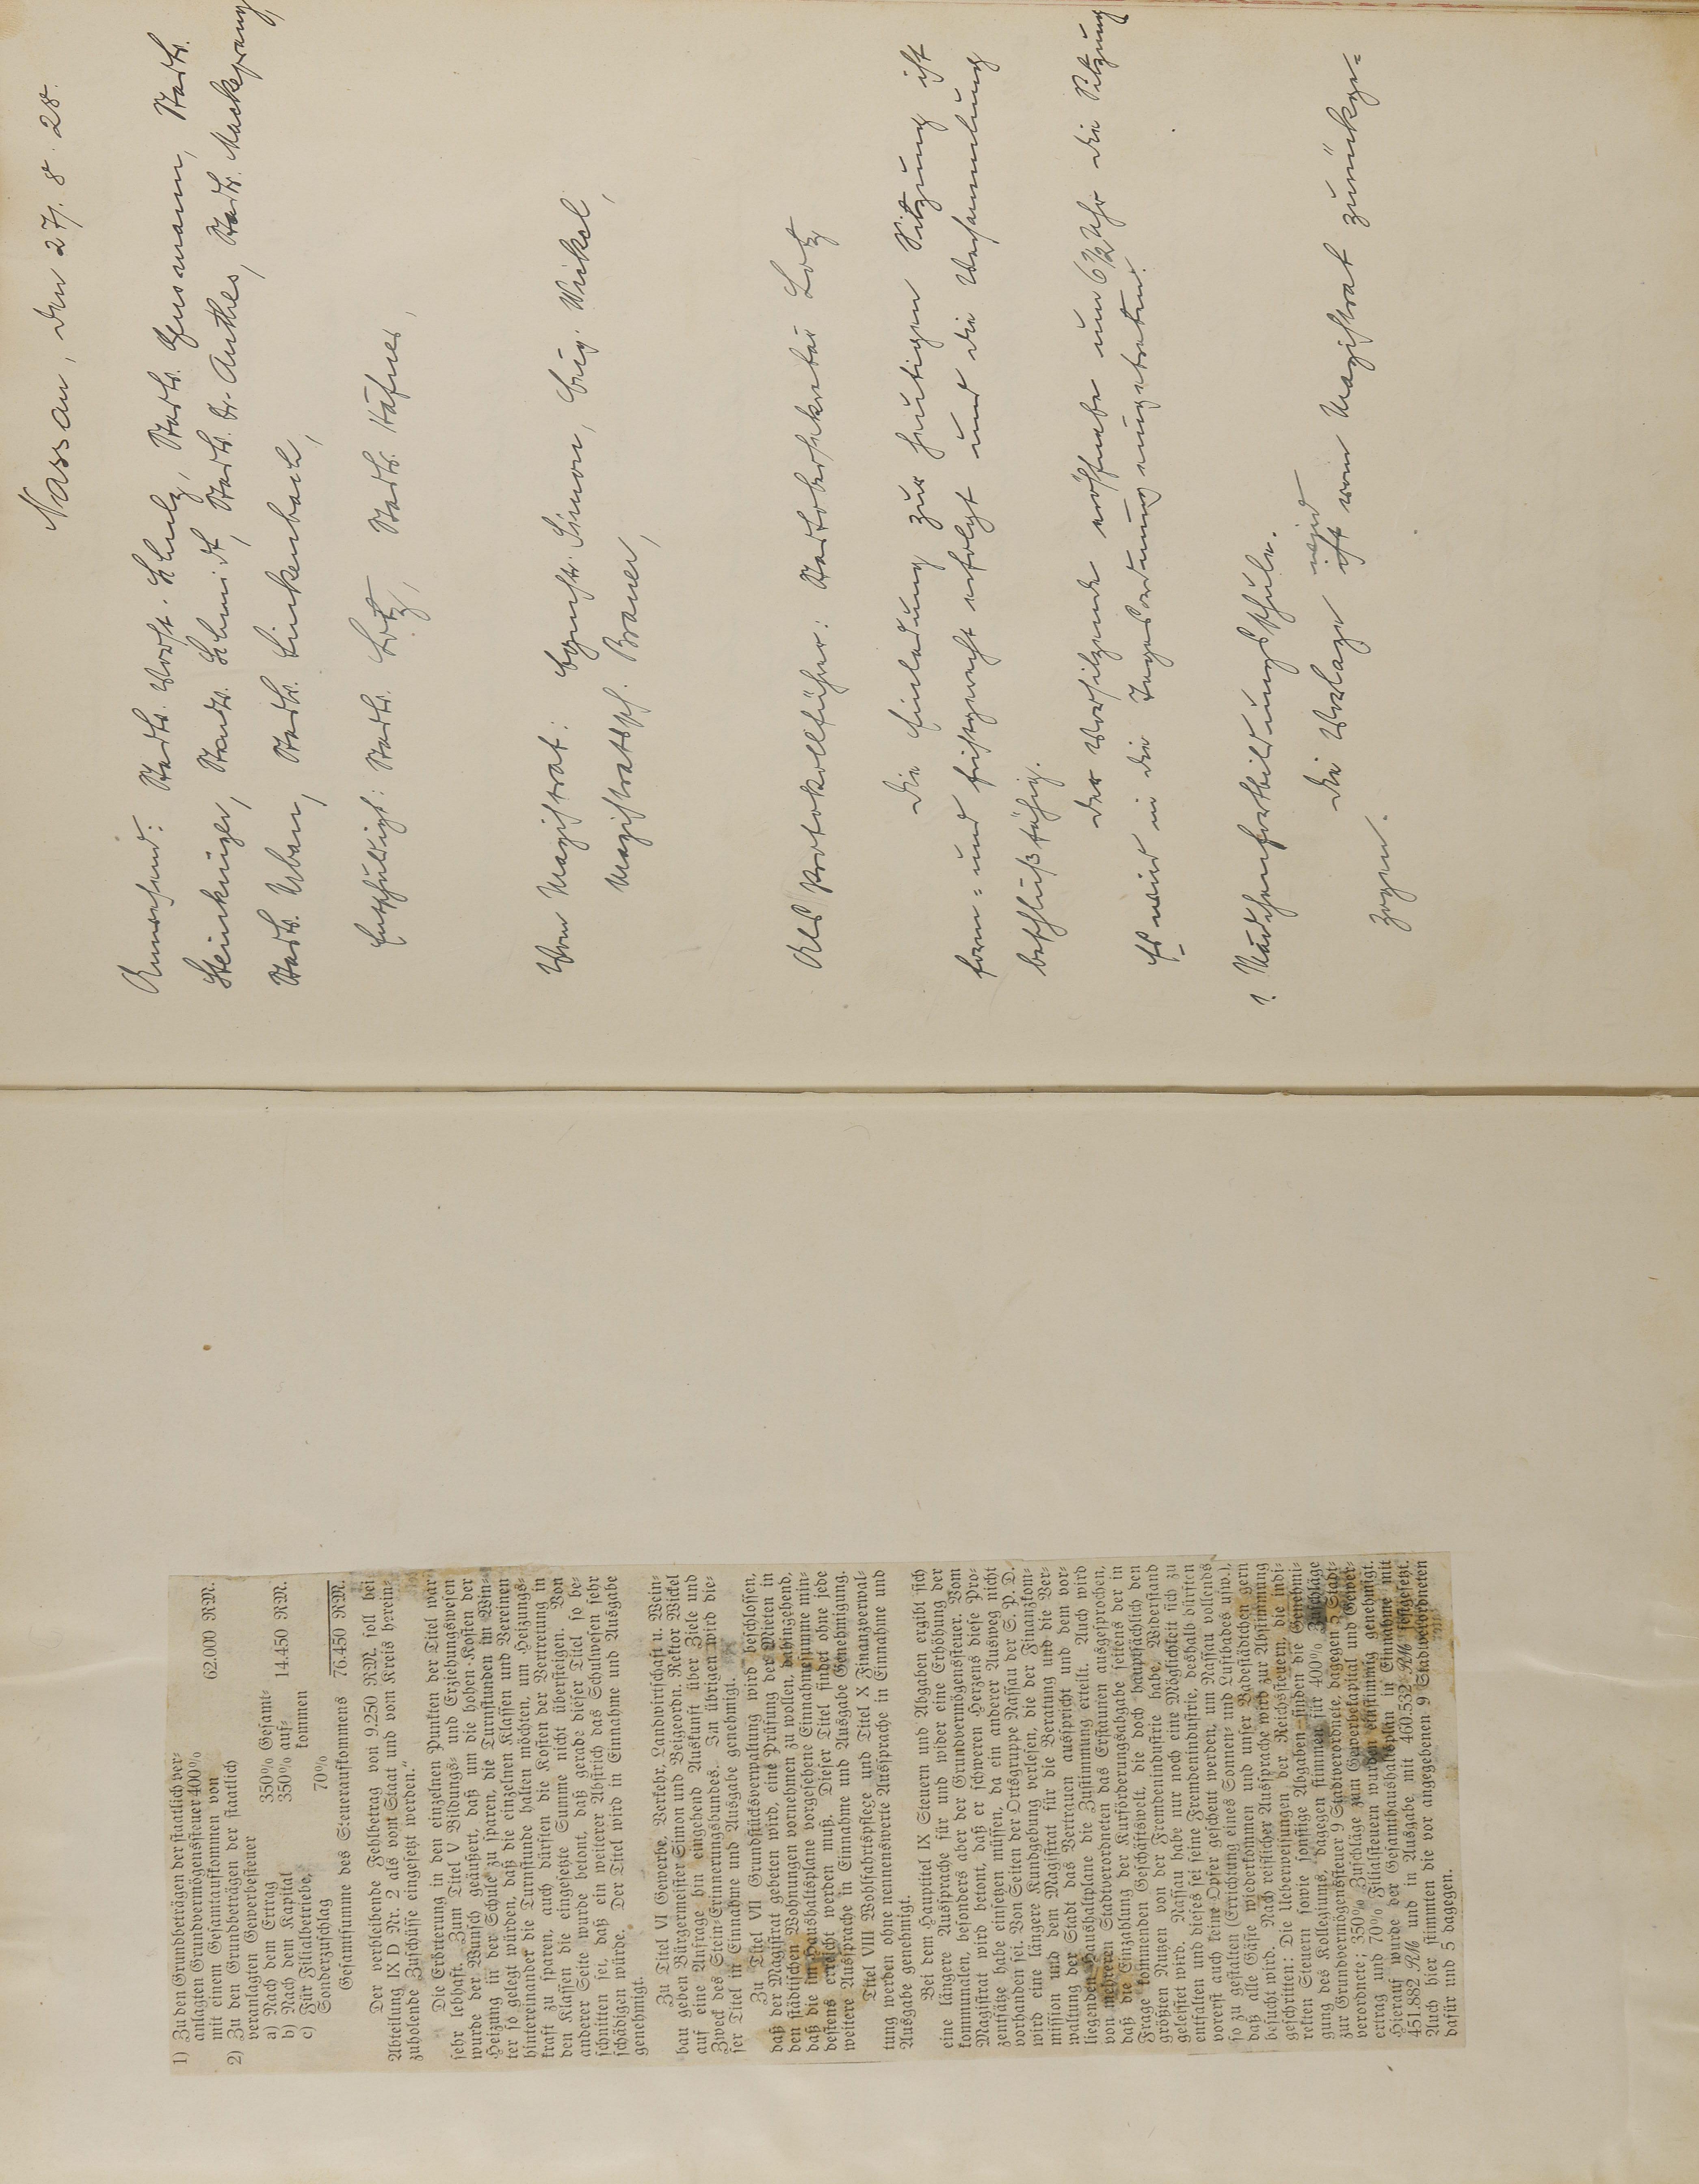 1) Zu den Grundbeträgen der staatlich ver-
anlagten Grundvermögenssteuer 400%
mit einem Gesamtaufkommen von 62.000 RM.
2) Zu den Grundbeträgen der staatlich
veranlagten Gewerbesteuer
a) Nach dem Ertrag 350% Gesamt-
b) Nach dem Kapital 350% auf- 14.450 RM.
c) Für Filialbetriebe, kommen
Sonderzuschlag 70%
Gesamtsumme des Steueraufkommens 76.450 RM.
Der verbleibende Fehlbetrag von 9.250 RM. soll bei
Abteilung IX D Nr. 2 als vom Staat und vom Kreis herein-
zuholende Zuschüsse eingesetzt werden.“
Die Erörterung in den einzelnen Punkten der Titel war
sehr lebhaft. Zum Titel V Bildungs- und Erziehungswesen
wurde der Wunsch geäußert, daß um die hohen Kosten der
Heizung in der Schule zu sparen, die Turnstunden im Win-
ter so gelegt würden, daß die einzelnen Klassen und Vereinen
hintereinander die Turnstunde halten möchten, um Heizungs-
kraft zu sparen, auch dürften die Kosten der Vertretung in
den Klassen die eingesetzte Summe nicht übersteigen. Von
anderer Seite wurde betont, daß gerade dieser Titel so be-
schnitten sei, daß ein weiterer Abstrich das Schulwesen sehr
schädigen würde. Der Titel wird in Einnahme und Ausgabe
genehmigt.
Zu Titel VI Gewerbe, Verkehr, Landwirtschaft u. Wein-
bau geben Bürgermeister Simon und Beigeordn. Rektor Wickel
auf eine Anfrage hin eingehend Auskunft über Ziele und
Zweck des Stein-Erinnerungsbundes. Im übrigen wird die-
ser Titel in Einnahme und Ausgabe genehmigt.
Zu Titel VII Grundstücksverwaltung wird beschlossen,
daß der Magistrat gebeten wird, eine Prüfung der Mieten in
den städtischen Wohnungen vornehmen zu wollen, dahingehend,
daß die im Haushaltsplane vorgesehene Einnahmesumme min-
destens erreicht werden muß. Dieser Titel findet ohne jede
weitere Aussprache in Einnahme und Ausgabe Genehmigung.
Titel VIII Wohlfahrtspflege und Titel X Finanzverwal-
tung werden ohne nennenswerte Aussprache in Einnahme und
Ausgabe genehmigt.
Bei dem Haupttitel IX Steuern und Abgaben ergibt sich
eine längere Aussprache für und wider eine Erhöhung der
kommunalen, besonders aber der Grundvermögenssteuer. Vom
Magistrat wird betont, daß er schweren Herzens diese Pro-
zentsätze habe einsetzen müssen, da ein anderer Ausweg nicht
vorhanden sei. Von Seiten der Ortsgruppe Nassau der S. P. D.
wird eine längere Kundgebung verlesen, die der Finanzkom-
mission und dem Magistrat für die Beratung und die Ver-
waltung der Stadt das Vertrauen ausspricht und dem vor-
liegenden Haushaltplane die Zustimmung erteilt. Auch wird
von mehreren Stadtverordneten das Erstaunen ausgesprochen,
daß die Einzahlung der Kurförderungsabgabe seitens der in
Frage kommenden Geschäftswelt, die doch hauptsächlich den
größten Nutzen von der Fremdenindustrie habe, Widerstand
geleistet wird. Nassau habe nur noch eine Möglichkeit sich zu
entfalten und dieses sei seine Fremdenindustrie, deshalb dürften
vorerst auch keine Opfer gescheut werden, um Nassau vollends
so zu gestalten (Errichtung eines Sonnen- und Luftbades usw.),
daß alle Gäste wiederkommen und unser Badestädtchen gern
besucht wird. Nach reiflicher Aussprache wird zur Abstimmung
geschritten: Die Ueberweisungen der Reichssteuern, die indi-
rekten Steuern sowie sonstige Abgaben finden die Genehmi-
gung des Kollegiums, dagegen stimmen für 400% Zuschläge
zur Grundvermögenssteuer 9 Stadtverordnete, dagegen 5 Stadt-
verordnete; 350% Zuschläge zum Gewerbekapital und Gewer-
ertrag und 70% Filialsteuern wurden einstimmig genehmigt.
Hierauf wurde der Gesamthaushaltsplan in Einnahme mit
451.882 RM und in Ausgabe mit 460.532 RM festgesetzt.
Auch hier stimmten die vor angegebenen 9 Stadtverordneten
dafür und 5 dagegen.
Nassau, den 27. 8. 28.
Anwesend: Stadtv. Vorst. Schulz, Stadtv. Stadtv.
Steinhäuser, Stadtv. Schmidt, Stadtv. Dr. Anthes, Stadtv. Mackeprang,
Stadtv. Urban, Stadtv. Linkenbach,
Entschuldigt: Stadtv. Stadtv. Häfner,
Vom Magistrat: Bgmstr. Simon, Beig. Wickel,
Magistratssch. Braner,
Als Protokollführer: Stadtobersekretär Lotz
Die Einladung zur heutigen Sitzung ist
form- und fristgerecht erfolgt und die Versammlung
beschlußfähig.
Der Vorsitzende eröffnete um 6 1/2 Uhr die Sitzung
Es wird in die Tagesordnung eingetreten.
1. Mädchenfortbildungsschule.
Die Vorlage ist wird vom Magistrat zurückge-
zogen.